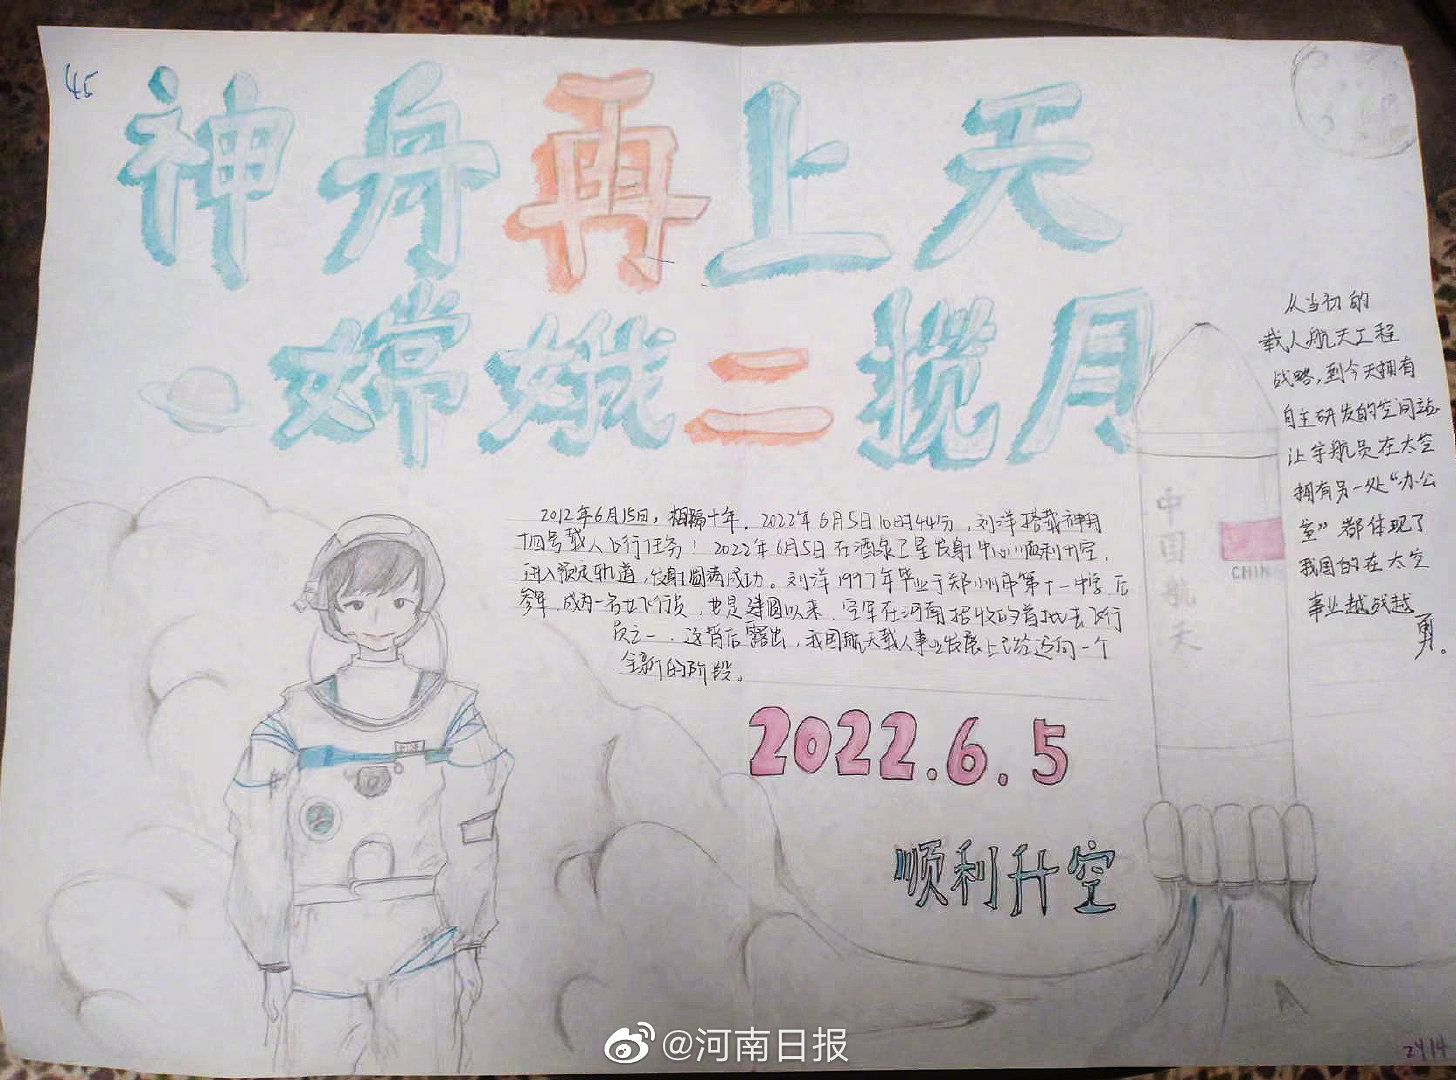 45
神舟再上天
嫦娥二揽月
2012年6月15日，相隔十年，2022年6月5日10时44分，刘洋搭载神舟
十四号载人飞行任务！2022年6月5日在酒泉卫星发射中心顺利升空，
进入预定轨道，发射圆满成功。刘洋1997年毕业于郑州市第十一中学，后
参军，成为一名女飞行员，也是建国以来，空军在河南招收的首批女飞行
员之一，这背后露出，我国航天载人事业发展上已经迈向一个
全新的阶段。
从当初的
载人航天工程
战略，到今天拥有
自主研发的空间站
让宇航员在太空
拥有另一处“办公
室”都体现了
我国的在太空
事业越战越
勇。
中国航天
CHIN
刘洋
2022.6.5
顺利升空
2414
@河南日报